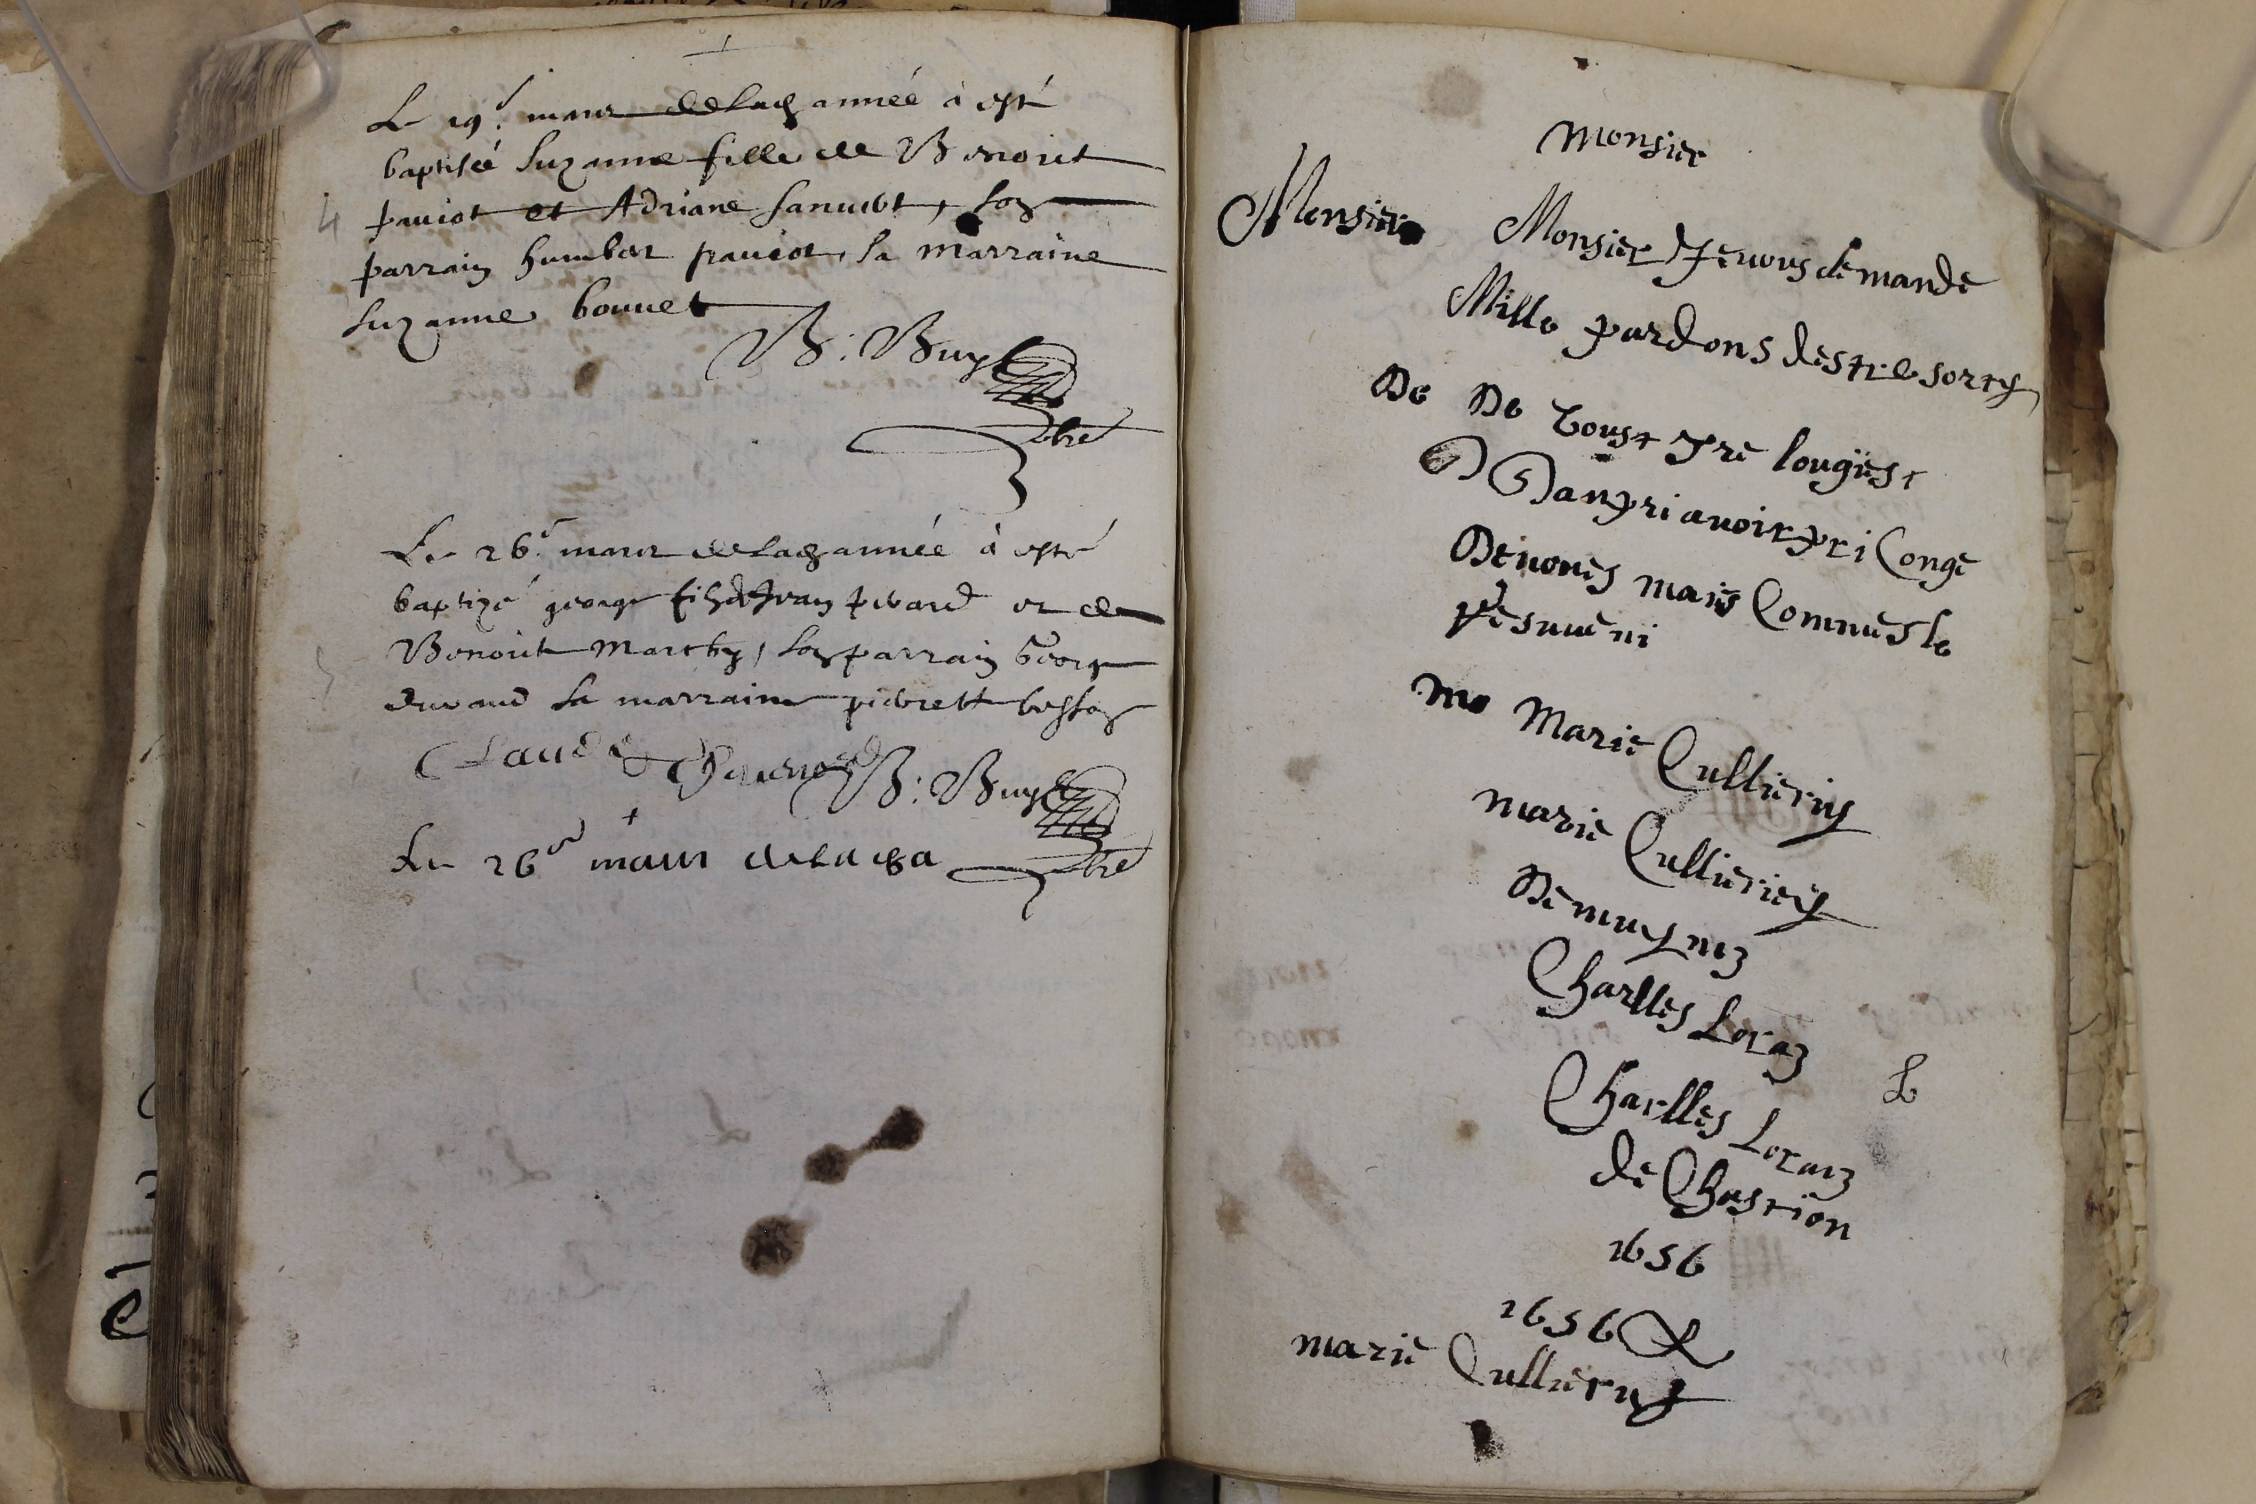 Le 19e. mars de lad année à esté
baptisée Suzanne fille de Benoit
paviot et Adriane , son
parrain humber paviot, sa marraine
Suzanne bouvet
B: Buy
pbre
Le 26e. mars de lad année à esté
baptizé george filz de Jean pivard et de
Benoite , son parrain George
durand sa marraine pierrette besson
Claude
B: Buy
Le 26e mars de lad a
pbre
4
Monsier
Monsier Monsier Je vous demande
Mille pardons destre sorty
De De vostre lougiest
D Danpri avoir pri Conge
De vous mais Comme le
me Marie Cullieriy
marie Cullieriey
De
Charlles Loraz
L
Charlles Loraz
de Chastion
1656
1656
marie Cullieruy